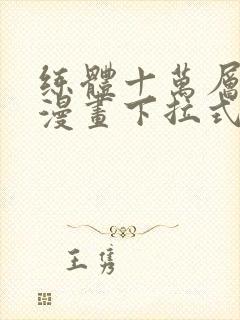 练體十萬層
漫畫下拉式
王隽